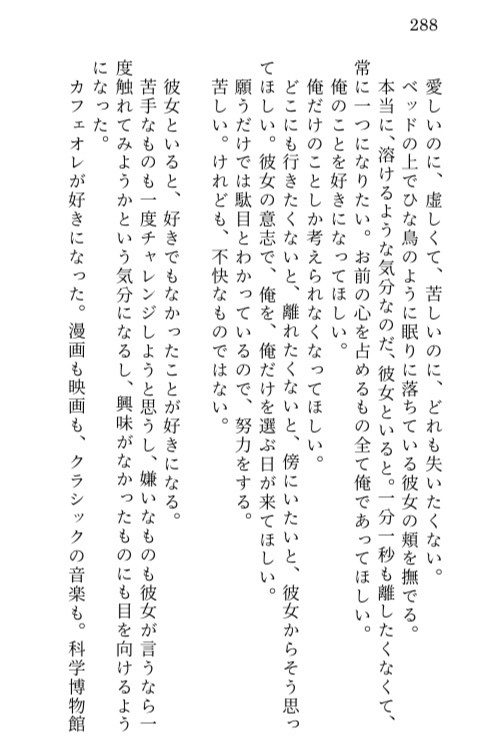 288
愛しいのに、虚しくて、苦しいのに、どれも失いたくない。
ベッドの上でひな鳥のように眠りに落ちている彼女の頬を撫でる。
本当に、溶けるような気分なのだ、彼女といると。一分一秒も離したくなくて、
常に一つになりたい。お前の心を占めるもの全て俺であってほしい。
俺のことを好きになってほしい。
俺だけのことしか考えられなくなってほしい。
どこにも行きたくないと、離れたくないと、傍にいたいと、彼女からそう思っ
てほしい。彼女の意志で、俺を、俺だけを選ぶ日が来てほしい。
願うだけでは駄目とわかっているので、努力をする。
苦しい。けれども、不快なものではない。
彼女といると、好きでもなかったことが好きになる。
苦手なものも一度チャレンジしようと思うし、嫌いなものも彼女が言うなら一
度触れてみようかという気分になるし、興味がなかったものにも目を向けるよう
になった。
カフェオレが好きになった。漫画も映画も、クラシックの音楽も。科学博物館